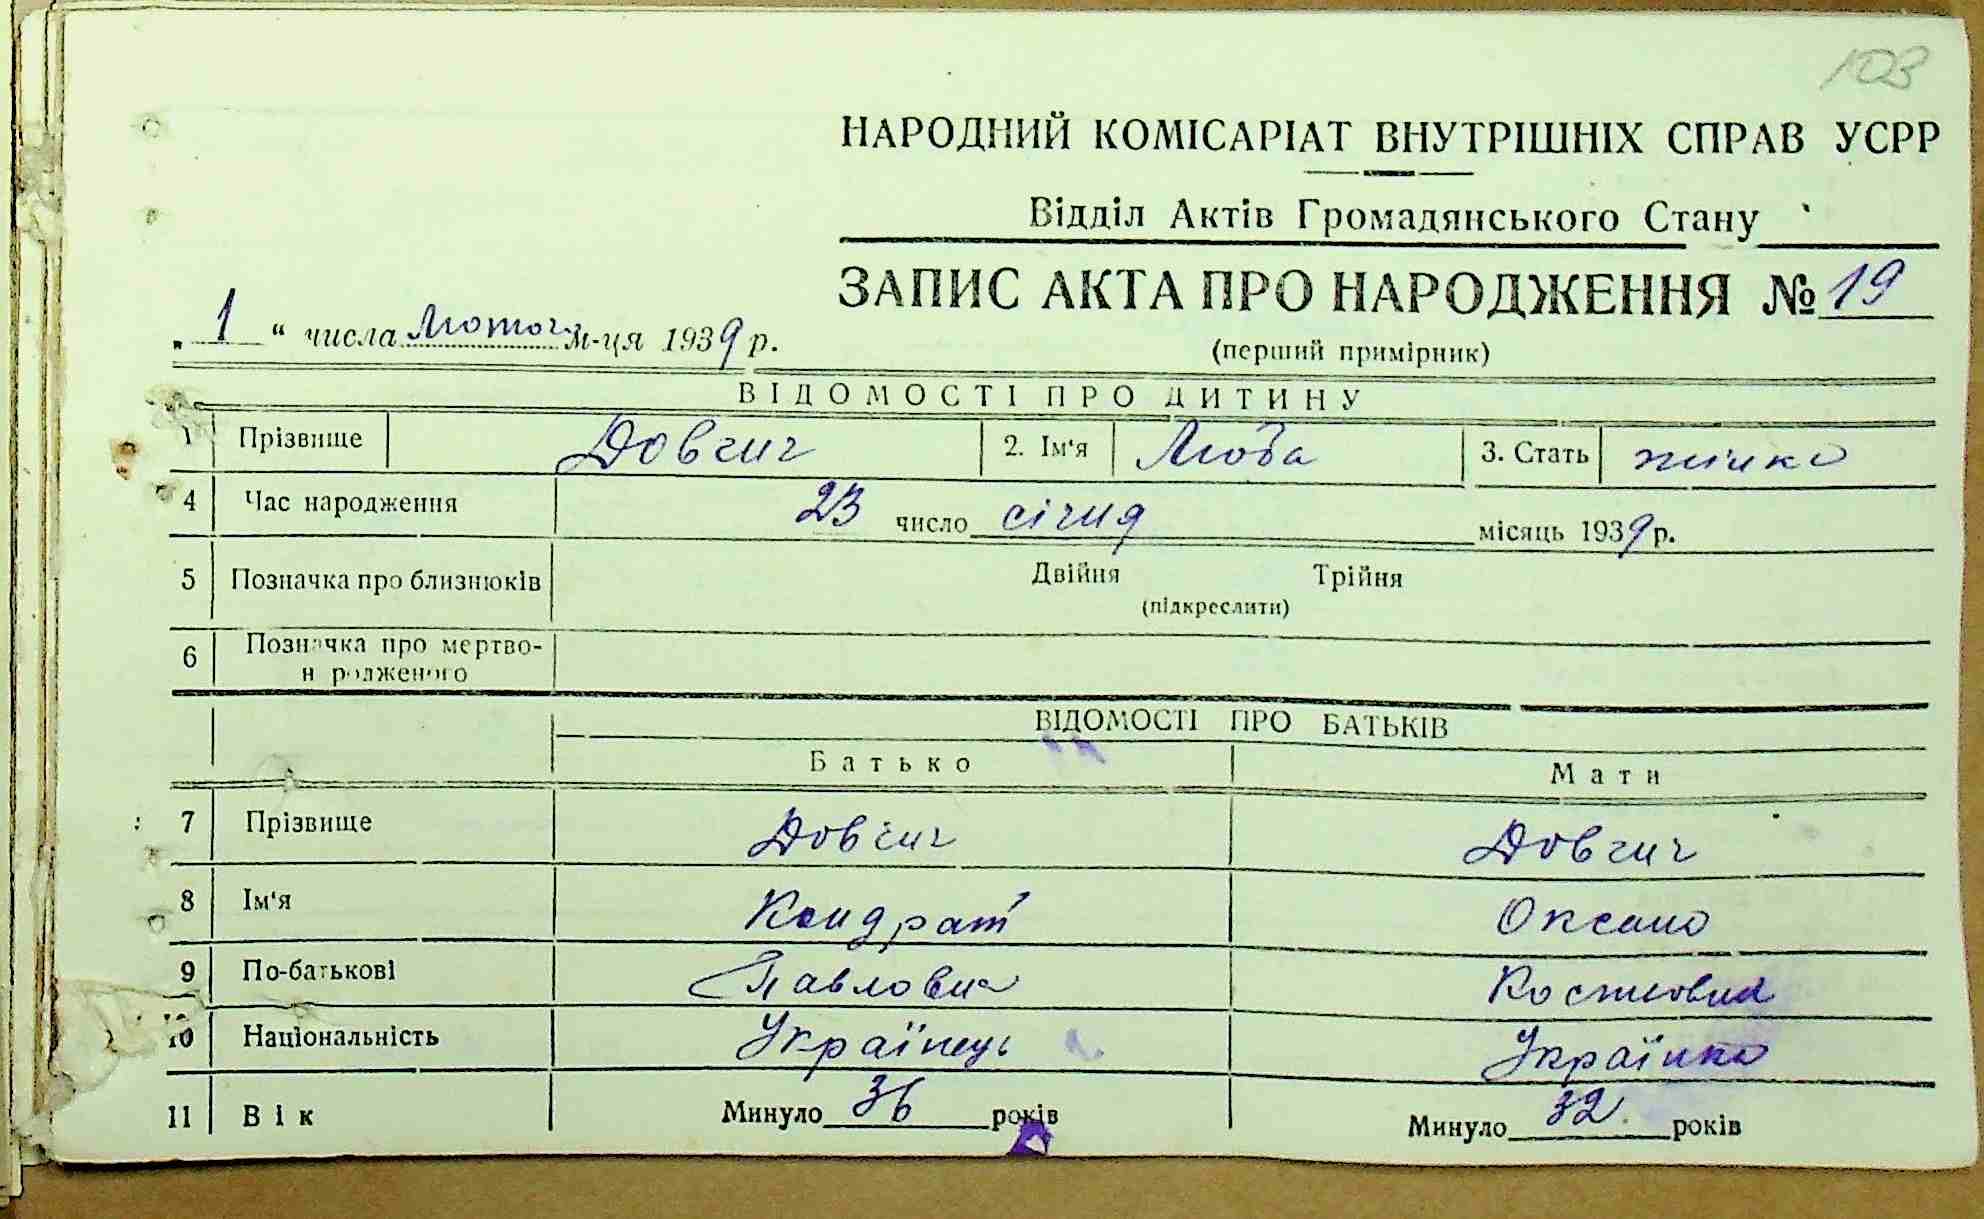 103
НАРОДНИЙ КОМІСАРІАТ ВНУТРІШНІХ СПРАВ УСРР
Відділ Актів Громадянського Стану
ЗАПИС АКТА ПРО НАРОДЖЕННЯ № 19
„ 1 “ числа Лютого м-ця 1939 р.
(перший примірник)
ВІДОМОСТІ ПРО ДИТИНУ
1 Прізвище Довгич 2. Ім'я Люба 3. Стать жінка
4 Час народження 23 число січня місяць 1939 р.
5 Позначка про близнюків Двійня Трійня
(підкреслити)
6 Позначка про мертво-
н родженого
ВІДОМОСТІ ПРО БАТЬКІВ
Батько Мати
7 Прізвище Довгич Довгич
8 Ім'я Кондрат Оксана
9 По-батькові Павлович
10 Національність Українець Українка
11 Вік Минуло 36 років Минуло 32 років